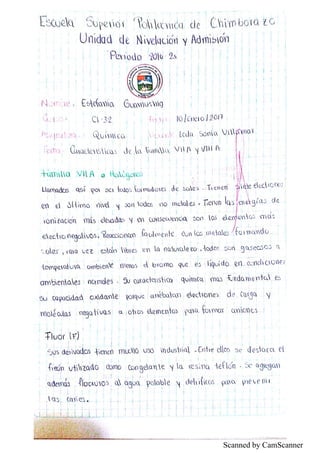 Escuela Superior Politécnica de Chimborazo
Unidad de Nivelación y Admisión
Periodo 2016-2s
Nombre: Estefania Guamushig
Curso: CI-32 Fecha: 10/Enero/2017
Asignatura: Química Docente: Lcda Sonia
Tema: Características de la familia VII A y VIII A
Familia VII A o Halógenos
Llamados así por ser todos formadores de sales. Tienen siete electrones
en el último nivel y son todos no metales. Tienen las energías de
ionización más elevadas y en consecuencia son los elementos más
electronegativos. Reaccionan fácilmente con los metales formando
sales, rara vez están libres en la naturaleza, todos son gaseosos a
temperatura ambiente menos el bromo que es líquido en condiciones
ambientales normales. Su característica química más fundamental es
su capacidad oxidante porque arrebatan electrones de carga y
moléculas negativas a otros elementos para formar aniones.
Fluor (F)
Sus derivados tienen mucho uso industrial. Entre ellos se destaca el
freón utilizado como congelante y la resina teflón. Se agregan
además floruros al agua potable y detrificos para prevenir
las caries.
Scanned by CamScanner